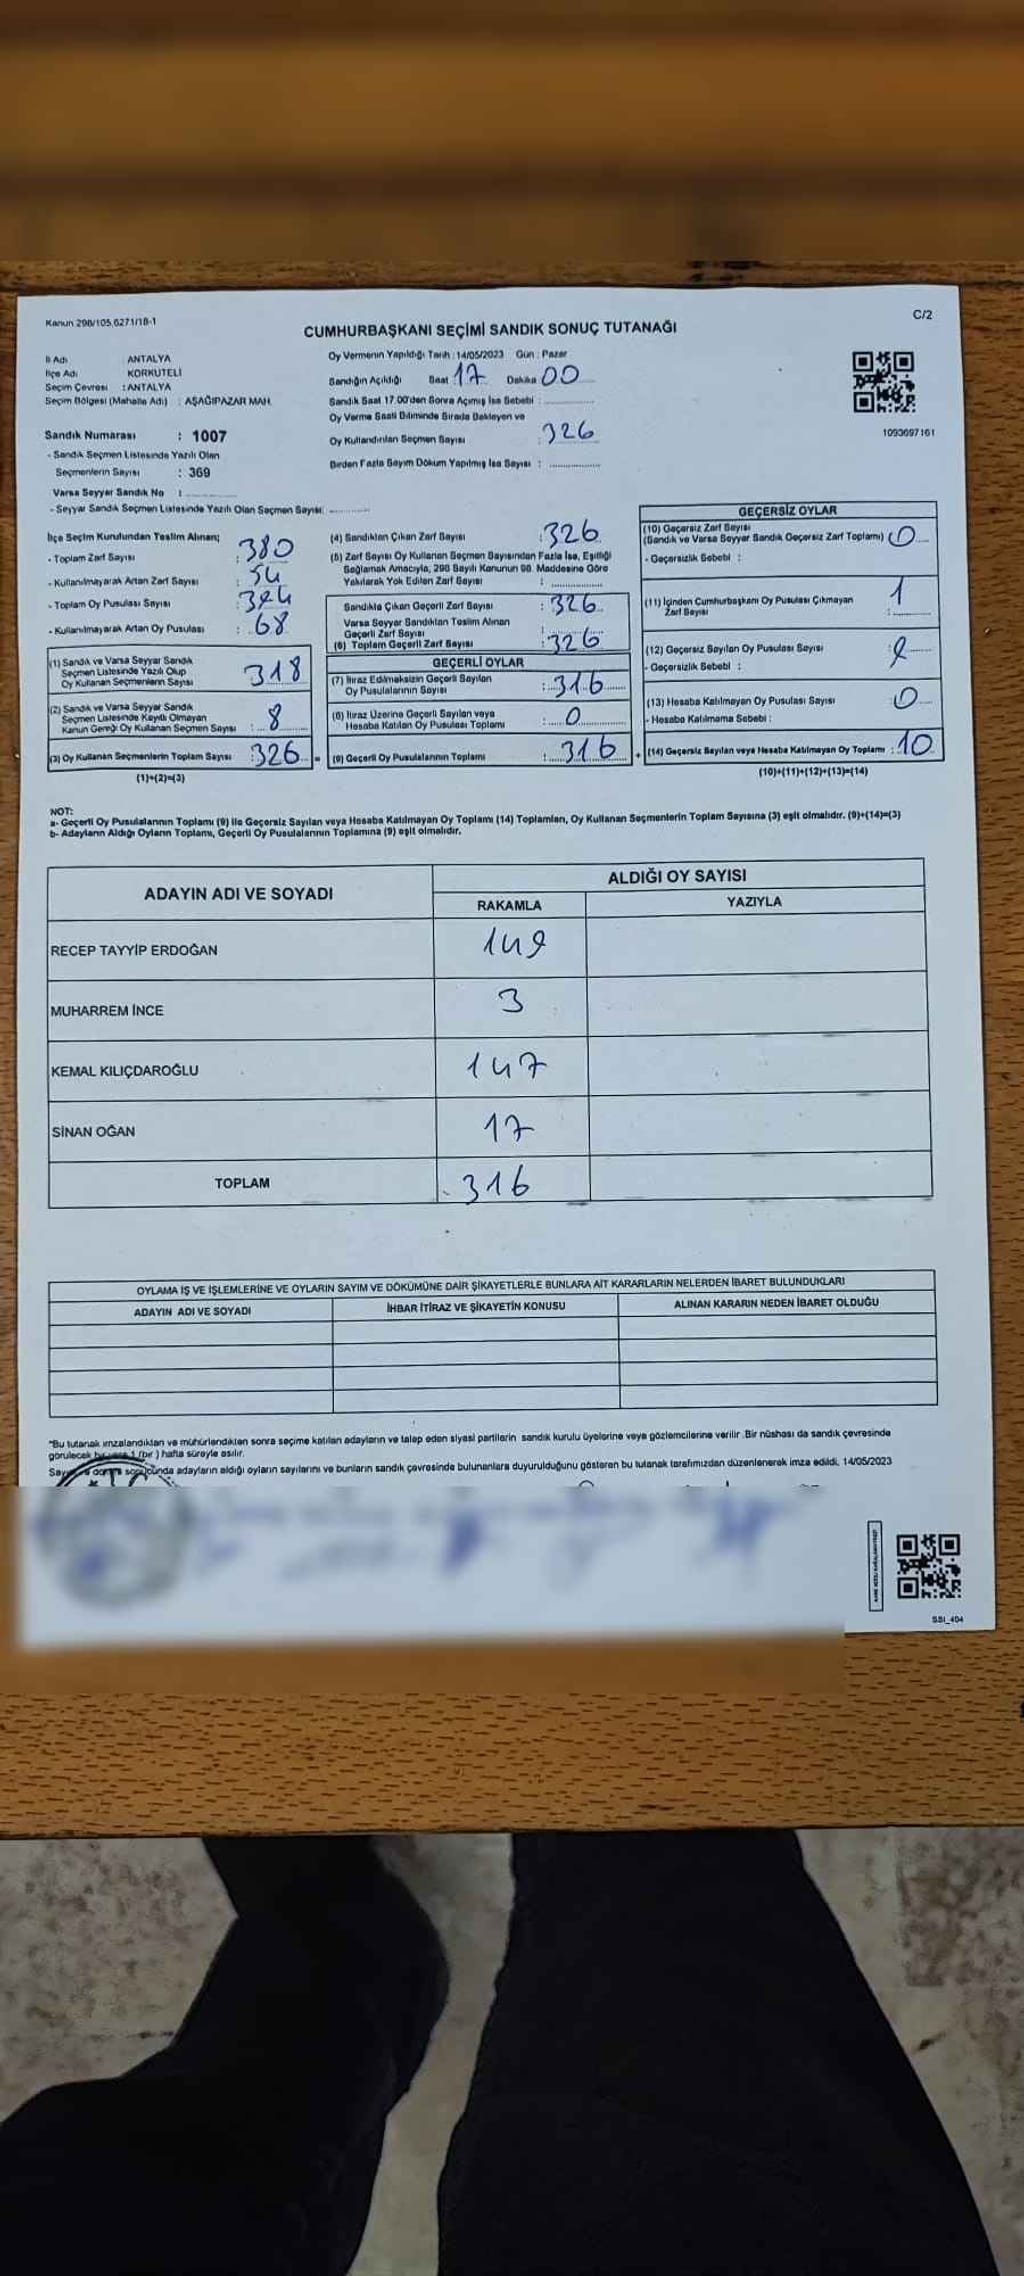 Kanun 298/105,6271/18-1
C/2
CUMHURBAŞKANI SEÇİMİ SANDIK SONUÇ TUTANAĞI
İl Adı : ANTALYA
İlçe Adı : KORKUTELİ
Seçim Çevresi : ANTALYA
Seçim Bölgesi (Mahalle Adı) : AŞAĞIPAZAR MAH.
Sandık Numarası : 1007
- Sandık Seçmen Listesinde Yazılı Olan
Seçmenlerin Sayısı : 369
Varsa Seyyar Sandık No :
- Seyyar Sandık Seçmen Listesinde Yazılı Olan Seçmen Sayısı:
Oy Vermenin Yapıldığı Tarih : 14/05/2023 Gün : Pazar
Sandığın Açıldığı Saat 17 Dakika 00
Sandık Saat 17.00'den Sonra Açılmış İse Sebebi :
Oy Verme Saati Bitiminde Sırada Bekleyen ve
Oy Kullandırılan Seçmen Sayısı : 326
Birden Fazla Sayım Döküm Yapılmış İse Sayısı :
1093697161
İlçe Seçim Kurulundan Teslim Alınan;
- Toplam Zarf Sayısı : 380
- Kullanılmayarak Artan Zarf Sayısı : 54
- Toplam Oy Pusulası Sayısı : 394
- Kullanılmayarak Artan Oy Pusulası : 68
(1) Sandık ve Varsa Seyyar Sandık
Seçmen Listesinde Yazılı Olup
Oy Kullanan Seçmenlerin Sayısı 318
(2) Sandık ve Varsa Seyyar Sandık
Seçmen Listesinde Kayıtlı Olmayan
Kanun Gereği Oy Kullanan Seçmen Sayısı : 8
(3) Oy Kullanan Seçmenlerin Toplam Sayısı : 326
(1)+(2)=(3)
(4) Sandıktan Çıkan Zarf Sayısı : 326
(5) Zarf Sayısı Oy Kullanan Seçmen Sayısından Fazla İse, Eşitliği
Sağlamak Amacıyla, 298 Sayılı Kanunun 98. Maddesine Göre
Yakılarak Yok Edilen Zarf Sayısı :
Sandıkta Çıkan Geçerli Zarf Sayısı : 326
Varsa Seyyar Sandıktan Teslim Alınan
Geçerli Zarf Sayısı :
(6) Toplam Geçerli Zarf Sayısı : 326
GEÇERLİ OYLAR
(7) İtiraz Edilmeksizin Geçerli Sayılan
Oy Pusulalarının Sayısı : 316
(8) İtiraz Üzerine Geçerli Sayılan veya
Hesaba Katılan Oy Pusulası Toplamı : 0
= (9) Geçerli Oy Pusulalarının Toplamı : 316
GEÇERSİZ OYLAR
(10) Geçersiz Zarf Sayısı
(Sandık ve Varsa Seyyar Sandık Geçersiz Zarf Toplamı) : 0
- Geçersizlik Sebebi :
(11) İçinden Cumhurbaşkanı Oy Pusulası Çıkmayan
Zarf Sayısı : 1
(12) Geçersiz Sayılan Oy Pusulası Sayısı : 9
- Geçersizlik Sebebi :
(13) Hesaba Katılmayan Oy Pusulası Sayısı : 0
- Hesaba Katılmama Sebebi :
+ (14) Geçersiz Sayılan veya Hesaba Katılmayan Oy Toplamı : 10
(10)+(11)+(12)+(13)=(14)
NOT:
a- Geçerli Oy Pusulalarının Toplamı (9) ile Geçersiz Sayılan veya Hesaba Katılmayan Oy Toplamı (14) Toplamları, Oy Kullanan Seçmenlerin Toplam Sayısına (3) eşit olmalıdır. (9)+(14)=(3)
b- Adayların Aldığı Oyların Toplamı, Geçerli Oy Pusulalarının Toplamına (9) eşit olmalıdır.
ADAYIN ADI VE SOYADI
ALDIĞI OY SAYISI
RAKAMLA YAZIYLA
RECEP TAYYİP ERDOĞAN 149
MUHARREM İNCE 3
KEMAL KILIÇDAROĞLU 147
SİNAN OĞAN 17
TOPLAM 316
OYLAMA İŞ VE İŞLEMLERİNE VE OYLARIN SAYIM VE DÖKÜMÜNE DAİR ŞİKAYETLERLE BUNLARA AİT KARARLARIN NELERDEN İBARET BULUNDUKLARI
ADAYIN ADI VE SOYADI İHBAR İTİRAZ VE ŞİKAYETİN KONUSU ALINAN KARARIN NEDEN İBARET OLDUĞU
*Bu tutanak imzalandıktan ve mühürlendikten sonra seçime katılan adayların ve talep eden siyasi partilerin sandık kurulu üyelerine veya gözlemcilerine verilir .Bir nüshası da sandık çevresinde
görülecek bir yere 1 (bir) hafta süreyle asılır.
sonucunda adayların aldığı oyların sayılarını ve bunların sandık çevresinde bulunanlara duyurulduğunu gösteren bu tutanak tarafımızdan düzenlenerek imza edildi. 14/05/2023
T C
SSI_404